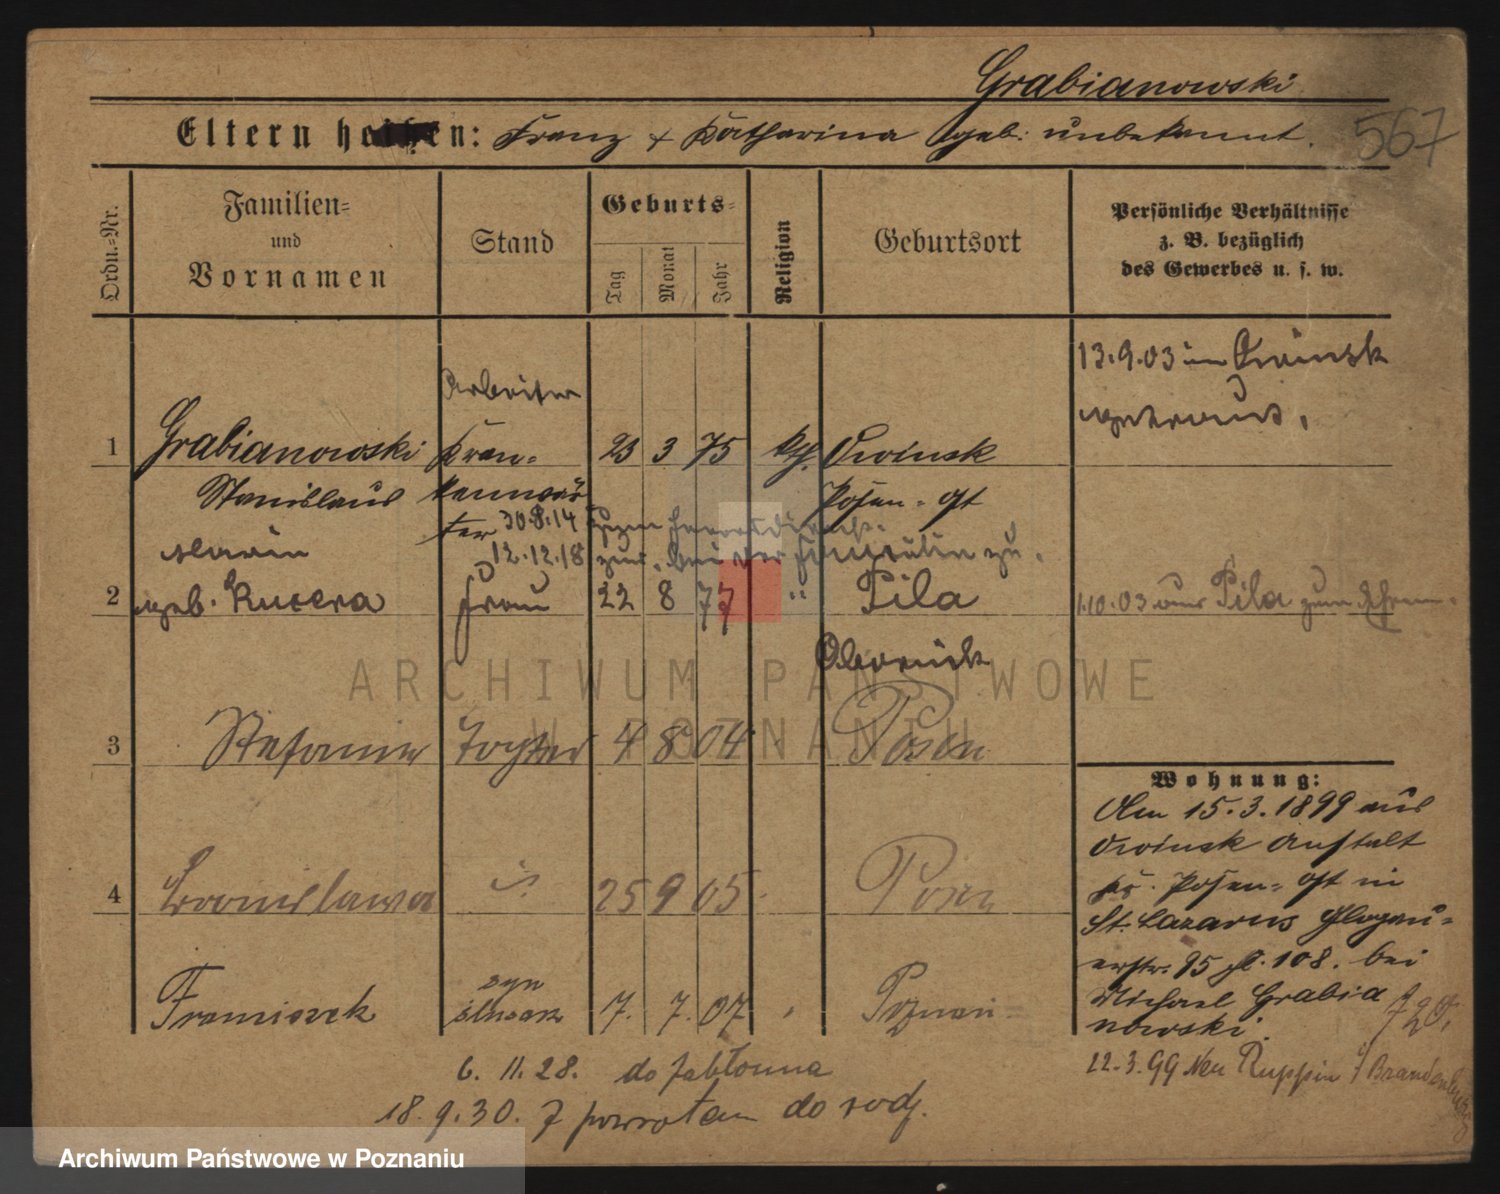 Grabianowski
567
Eltern heißen: Franz & Katharina geb. unbekannt.
Ordn.-Nr.
Familien-
und
Vornamen
Stand
Geburts-
Tag
Monat
Jahr
Religion
Geburtsort
Persönliche Verhältnisse
z. B. bezüglich
des Gewerbes u. s. w.
13.9.03 in Owinsk
getraut.
Arbeiter
1 Grabianowski Kran- 23 3 75 kth. Owinsk
Stanislaus kenwär Posen-Ost
ter 30.8.14 zum Heeresdienst.
Maria 12.12.18 zur. bei der Familie zu.
2 geb. Kucera Frau 22 8 77 " Pila
1.10.03 aus Pila zum Ehem.
Obornik
3 Stefania Tochter 4 8 04 Posen
4 Bronislawa 25 9 05 Posen
Franciszek syn ślusarz 7. 7. 07 Poznań
Wohnung:
Am 15.3.1899 aus
Owinsk Anstalt
Kr. Posen-Ost in
St. Lazarus Glogau-
erstr. 95 bei
Michael Grabia
nowski.
22.3.99 Neu Ruppin i/Brandenburg
6. 11. 28. do Jabłonna
18. 9. 30. z powrotem do rodz.
ARCHIWUM PAŃSTWOWE
W POZNANIU
Archiwum Państwowe w Poznaniu